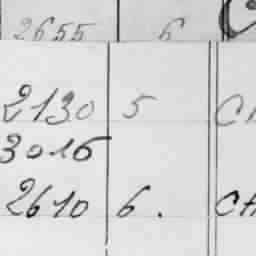 2655 6
2130 5
3016
2610 6.